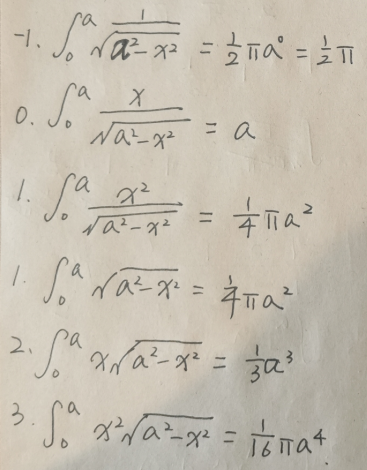 -1. ∫₀ᵃ 1/√(a²-x²) = 1/2 πa⁰ = 1/2 π
0. ∫₀ᵃ x/√(a²-x²) = a
1. ∫₀ᵃ x²/√(a²-x²) = 1/4 πa²
1. ∫₀ᵃ √(a²-x²) = 1/4 πa²
2. ∫₀ᵃ x√(a²-x²) = 1/3 a³
3. ∫₀ᵃ x²√(a²-x²) = 1/16 πa⁴.